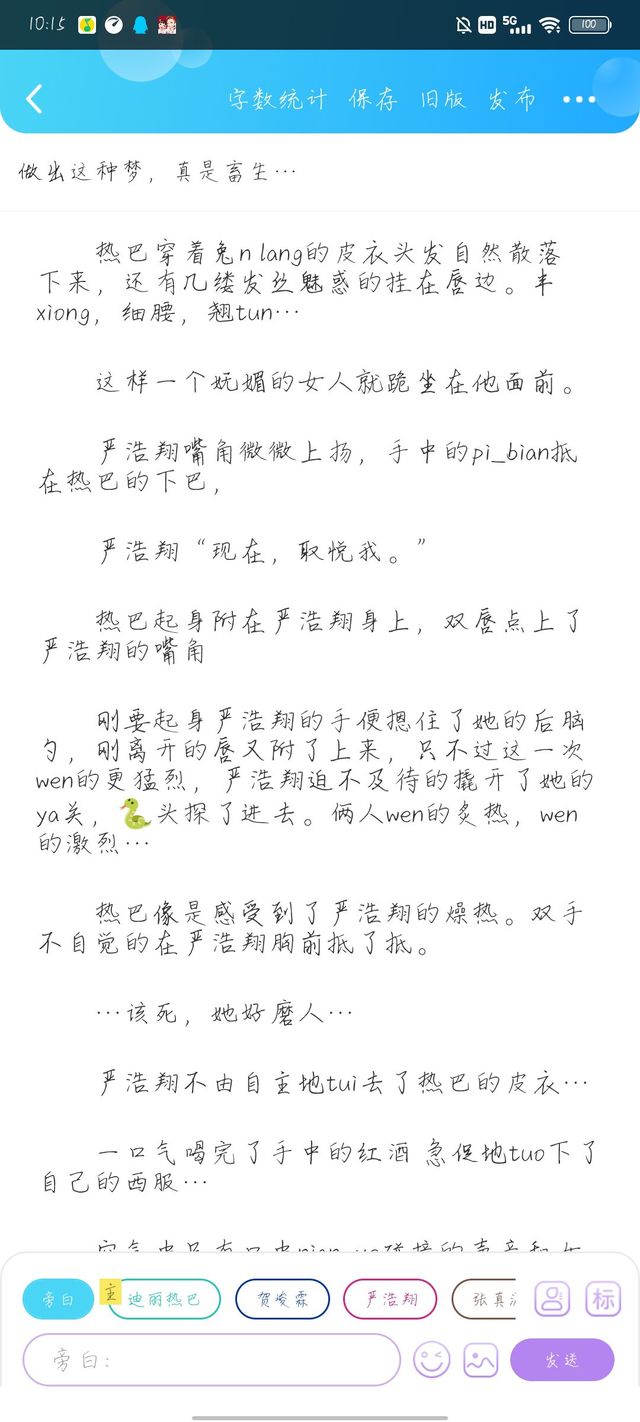 10:15
HD 5G 100
字数统计 保存 旧版 发布
做出这种梦，真是畜生…
热巴穿着兔n lang的皮衣头发自然散落
下来，还有几缕发丝魅惑的挂在唇边。丰
xiong，细腰，翘tun…
这样一个妩媚的女人就跪坐在他面前。
严浩翔嘴角微微上扬，手中的pi_bian抵
在热巴的下巴，
严浩翔“现在，取悦我。”
热巴起身附在严浩翔身上，双唇点上了
严浩翔的嘴角
刚要起身严浩翔的手便摁住了她的后脑
勺，刚离开的唇又附了上来，只不过这一次
wen的更猛烈，严浩翔迫不及待的撬开了她的
ya关，🐍头探了进去。俩人wen的炙热，wen
的激烈…
热巴像是感受到了严浩翔的燥热。双手
不自觉的在严浩翔胸前抵了抵。
…该死，她好磨人…
严浩翔不由自主地tui去了热巴的皮衣…
一口气喝完了手中的红酒 急促地tuo下了
自己的西服…
旁白 主 迪丽热巴 贺峻霖 严浩翔 张真 标
旁白： 发送